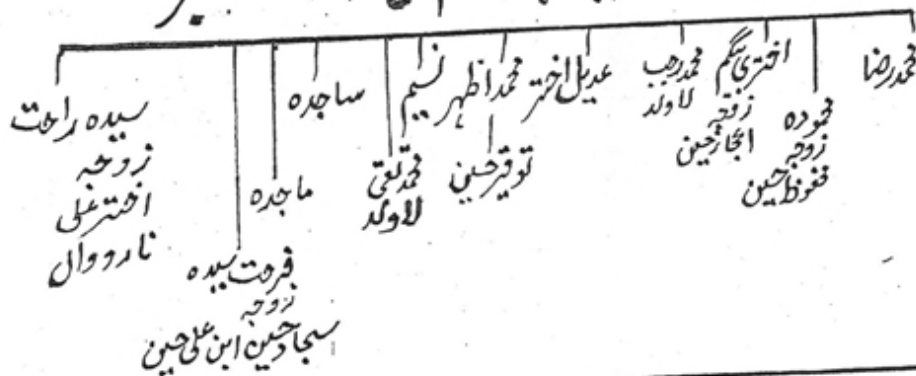 محمد رضا
محمودہ
زوجہ
محفوظ حسین
اختری بیگم
زوجہ
اعجاز حسین
محمد رجب
لاولد
عدیل اختر
محمد اظہر
توقیر حسین
نسیم
محمد تقی
لاولد
ساجدہ
ماجدہ
فرحت سیدہ
زوجہ
سجاد حسین ابن علی حسین
سیدہ راحت
زوجہ
اختر علی
نارووال